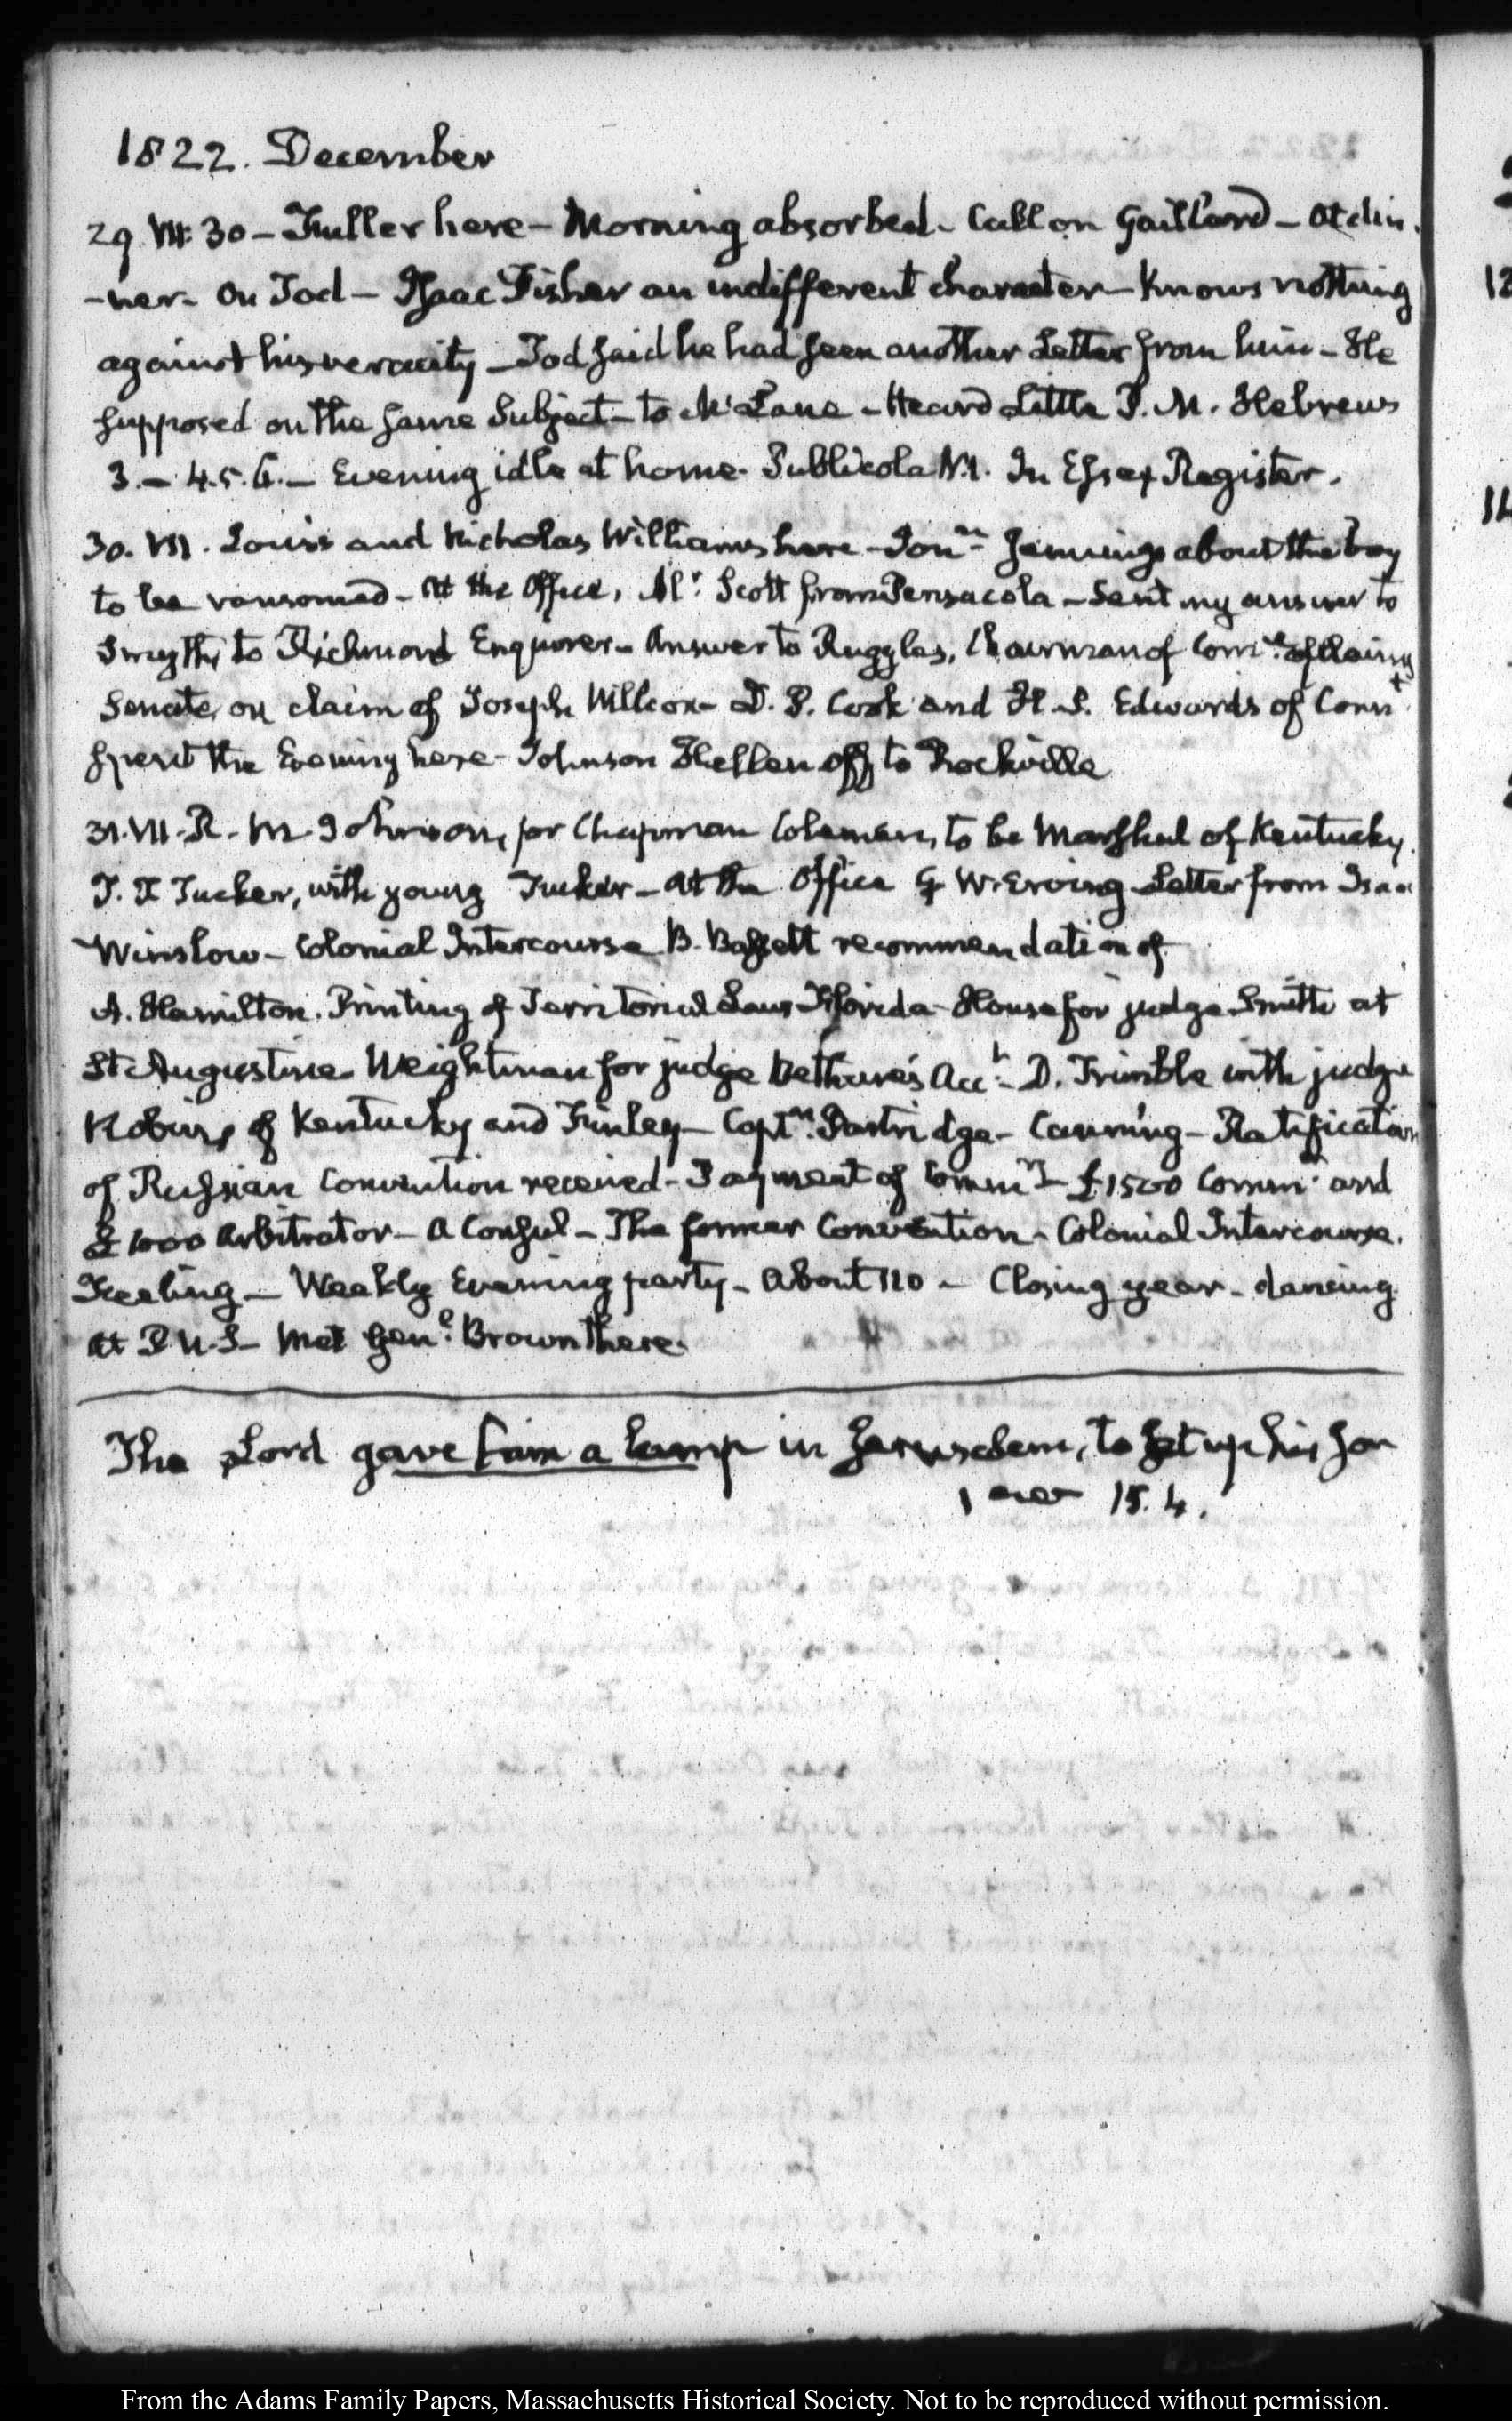 1822. December
29. VII: 30 – Fuller here – Morning absorbed – Call on Gaillard – At din-
-ner – On Tod – Isaac Fisher an indifferent character – Knows nothing
against his veracity – Tod said he had seen another Letter from him – He
supposed on the same Subject – to McLane – Heard Little P.M. Hebrews
3. – 4.5.6. – Evening idle at home. Publicola N.1. In Essex Register.
30. VII. Louis and Nicholas Williams here – Jonn. Jennings about the boy
to be ransomed – At the Office, Mr. Scott from Pensacola – Sent my answer to
Smyth, to Richmond Enquirer – Answer to Ruggles, Chairman of Comee. of Claims
Senate, on claim of Joseph Willcox – D. P. Cook and H. S. Edwards of Connt.
spent the Evening here – Johnson Hellen off to Rockville
31. VII. R. M. Johnson, for Chapman Coleman, to be Marshal of Kentucky.
T. T Tucker, with young Tucker – At the Office G W. Erving – Letter from Isaac
Winslow – Colonial Intercourse B. Bassett recommendation of
A. Hamilton. Printing of Territorial Laws Florida – House for judge Smith at
St. Augustine – Weightman for judge Acct. – D. Trimble with judge
of Kentucky and Finley – Captn. Partridge – Canning – Ratification
of Russian Convention received – Payment of Commn – £1500 Commr. and
£1000 Arbitrator – A Consul – The former Convention – Colonial Intercourse.
Keeling – Weekly Evening party – About 120 – Closing year – dancing
At P.U.S – Met Genl. Brown there.
The Lord gave him a lamp in Jerusalem, to set up his son
1 15. 4.
From the Adams Family Papers, Massachusetts Historical Society. Not to be reproduced without permission.